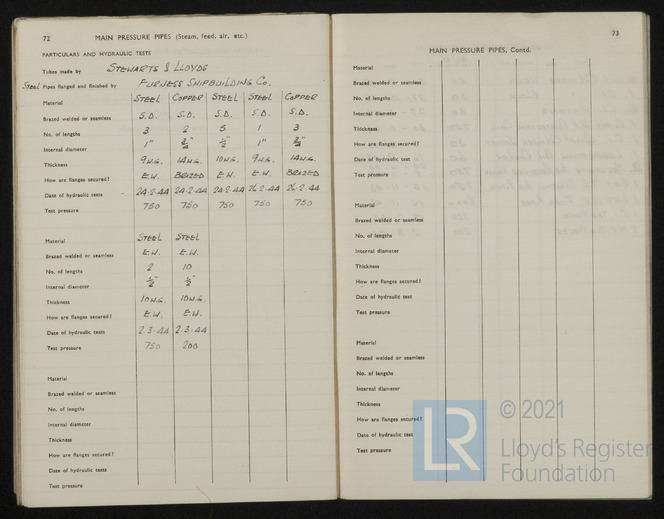 72 MAIN PRESSURE PIPES (Steam, feed, air, etc.)
PARTICULARS AND HYDRAULIC TESTS
Tubes made by STEWARTS & LLOYDS
Steel Pipes flanged and finished by FURNESS SHIPBUILDING Co.
Material STEEL COPPER STEEL STEEL COPPER
Brazed welded or seamless S.D. S.D. S.D. S.D. S.D.
No. of lengths 3 2 5 1 3
Internal diameter 1" 3/4" 1/2" 1" 3/4"
Thickness 9W.G. 14W.G. 10W.G. 9W.G. 14W.G.
How are flanges secured? E.W. BRAZED E.W. E.W. BRAZED
Date of hydraulic tests 24-2-44 24-2-44 24-2-44 26-2-44 26-2-44
Test pressure 750 750 750 750 750
Material STEEL STEEL
Brazed welded or seamless E.W. E.W.
No. of lengths 2 10
Internal diameter 1/2" 1/2"
Thickness 10W.G. 10W.G.
How are flanges secured? E.W. E.W.
Date of hydraulic tests 2-3-44 2-3-44
Test pressure 750 200
Material
Brazed welded or seamless
No. of lengths
Internal diameter
Thickness
How are flanges secured?
Date of hydraulic tests
Test pressure
73
MAIN PRESSURE PIPES, Contd.
Material
Brazed welded or seamless
No. of lengths
Internal diameter
Thickness
How are flanges secured?
Date of hydraulic test
Test pressure
Material
Brazed welded or seamless
No. of lengths
Internal diameter
Thickness
How are flanges secured?
Date of hydraulic test
Test pressure
Material
Brazed welded or seamless
No. of lengths
Internal diameter
Thickness
How are flanges secured?
Date of hydraulic test
Test pressure
LR © 2021
Lloyd's Register
Foundation